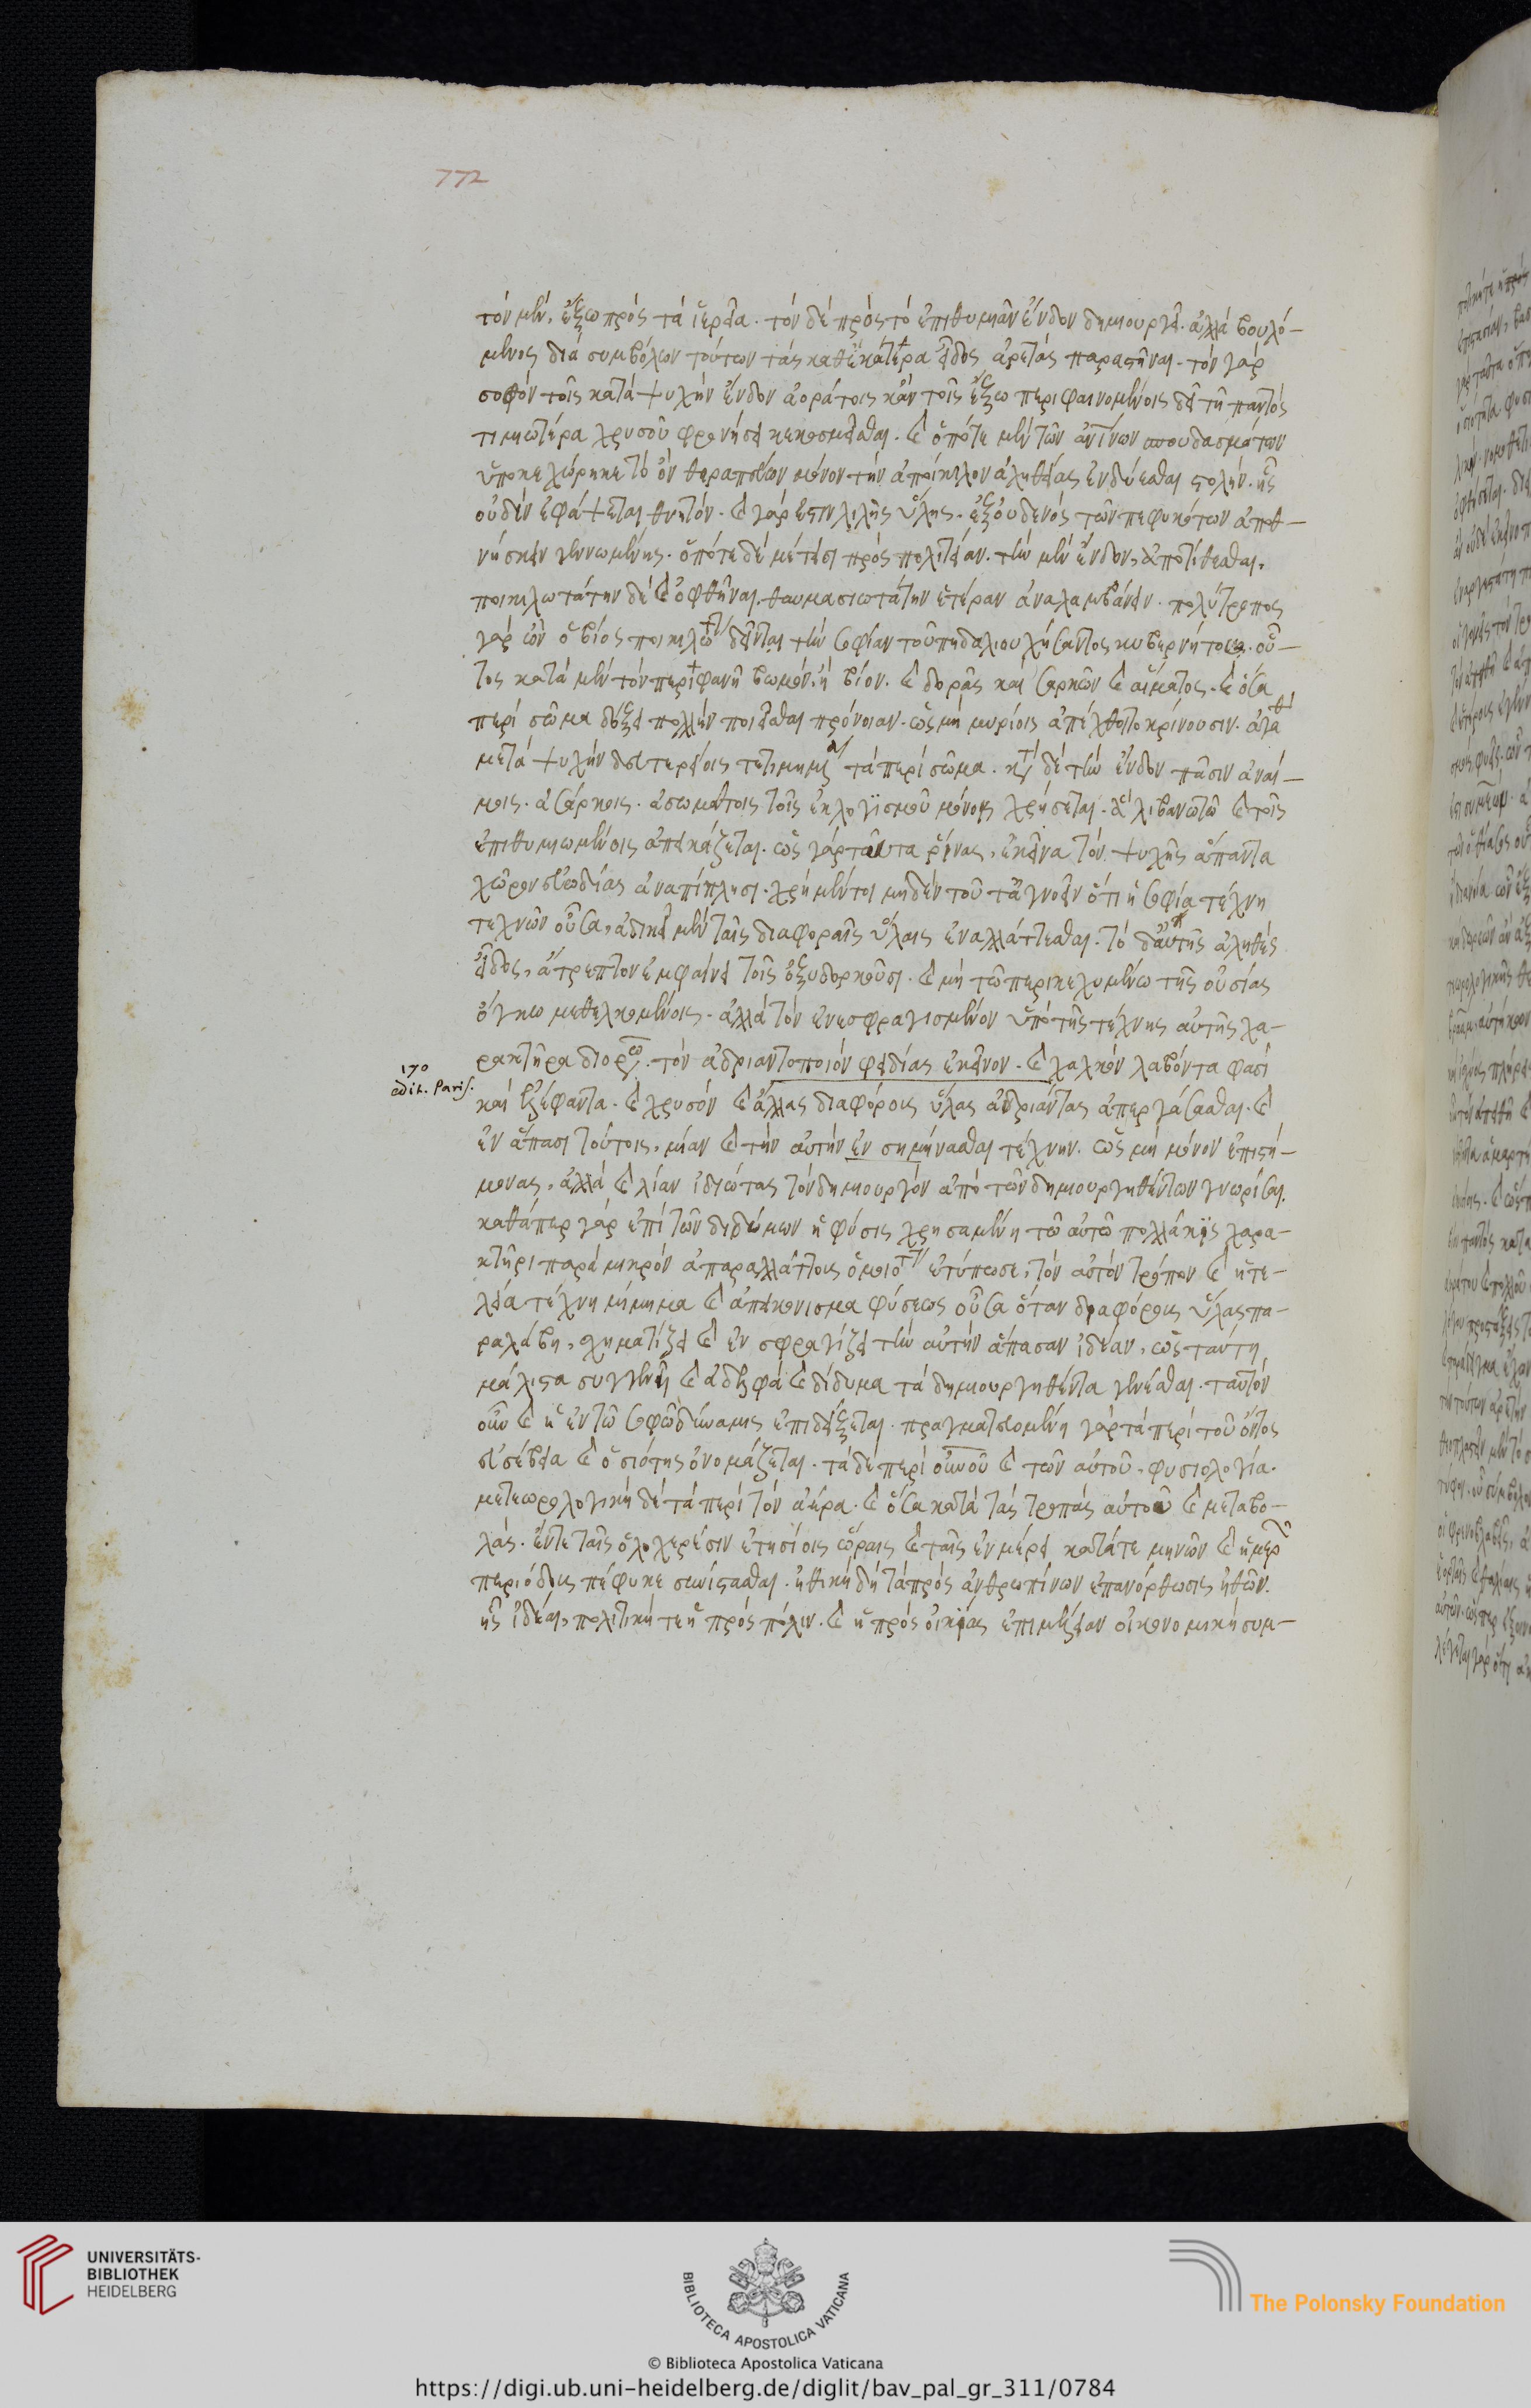 772
τόν μέν, ἔξω πρός τά ἱερεῖα. τόν δέ πρός τό ἐπιθυμιᾶν ἔνδον δημιουργεῖ. ἀλλά βουλό-
μενος διά συμβόλων τούτων τάς καθ' ἑκάτερα εἶδος ἀρετάς παραστῆναι. τόν γάρ
σοφόν τοῖς κατά ψυχήν ἔνδον ἀοράτοις κἄν τοῖς ἔξω περιφαινομένοις δεῖ τῆ παντός
τιμιωτέρα χρυσοῦ φρονήσει κεκοσμεῖσθαι. καὶ ὁπότε μέν τῶν ἀν σπουδασμάτων
ὑποκεχώρηκε τό ὄν θεραπεύων μόνον τήν ἀποίκιλον ἀληθείας ἐνδύεσθαι στολήν. ἧς
οὐδέν ἐφάψεται θνητόν. καὶ γάρ ἐστιν ὕλης. ἐξ οὐδενός τῶν πεφυκότων ἀποθ-
νήσκειν γεννωμένης. ὁπότε δέ μέτεισι πρός πολιτείαν. τήν μέν ἔνδον, ἀποτίθεσθαι,
ποικιλωτάτην δέ καὶ ὀφθῆναι. θαυμασιωτάτην ἑτέραν ἀναλαμβάνειν. πολύτροπος
γάρ ὤν ὁ βίος ποικιλω δεῖται τήν σοφίαν τοῦ πηδαλιουχήσαντος κυβερνήτου. οὗ-
τος κατά μέν τόν περιφανῆ βωμόν. ἤ βίον. καὶ δορᾶς καί σαρκῶν καὶ αἵματος. καὶ ὅσα
περί σῶμα δόξει πολλήν ποιεῖσθαι πρόνοιαν. ὡς μή μυρίοις ἀπέχθοιτο κρίνουσιν. ἀγαθ
μετά ψυχήν δευτερείοις τετιμημ τά περί σῶμα. κατ δέ τήν ἔνδον πᾶσιν ἀναί-
μοις. ἀσάρκοις. ἀσωμάτοις τοῖς ἐκ λογισμοῦ μόνοις χρήσεται. ἅ λιβανωτῶ καὶ τοῖς
ἐπιθυμιωμένοις ἀπεικάζεται. ὡς γάρ ταῦτα ῥίνας, ἐκεῖνα τόν ψυχῆς ἅπαντα
χῶρον εὐωδίας ἀναπίπλησι. χρή μέντοι μηδέν τοῦτ' ἀγνοεῖν ὅτι ἡ σοφία τέχνη
τεχνῶν οὖσα, ἀδικεῖ μέν ταῖς διαφοραῖς ὕλαις ἐναλλάττεσθαι. τό δ' αὐτῆς ἀληθές
εἶδος, ἄτρεπτον ἐμφαίνει τοῖς ὀξυδορκοῦσι. καὶ μή τῶ περικεχυμένω τῆς οὐσίας
ὄγκω μεθελκομένοις. ἀλλά τόν ἐνεσφραγισμένον ὑπό τῆς τέχνης αὐτῆς χα-
ρακτῆρα διορ. τόν ἀδριαντοποιόν φειδίας ἐκεῖνον. καὶ χαλκόν λαβόντα φασί
170
edit. Paris.
καί ἐλέφαντα. καὶ χρυσόν καὶ ἄλλας διαφόροις ὕλας ἀνδριάντας ἀπεργάσασθαι. καὶ
ἐν ἅπασι τούτοις, μίαν καὶ τήν αὐτήν ἐν σημήνασθαι τέχνην. ὡς μή μόνον ἐπιστή-
μονας, ἀλλά καὶ λίαν ἰδιώτας τόν δημιουργόν ἀπό τῶν δημιουργηθέντων γνωρίσαι.
καθάπερ γάρ ἐπί τῶν διδύμων ἡ φύσις χρησαμένη τῶ αὐτῶ πολλάκις χαρα-
κτῆρι παρά μικρόν ἀπαραλλάττους ὁμοιοτ ἐτύπωσε, τόν αὐτόν τρόπον καὶ ἡ τε-
λεία τέχνη μίμημα καὶ ἀπεικόνισμα φύσεως οὖσα ὅταν διαφόρους ὕλας πα-
ραλάβη, σχηματίζει καὶ ἐν σφραγίζει τήν αὐτήν ἅπασαν ἰδέαν, ὡς ταύτη
μάλιστα συγγενῆ καὶ ἀδελφά καὶ δίδυμα τά δημιουργηθέντα γενέσθαι. ταὐτόν
οὖν καὶ ἡ ἐν τῶ σοφῶ δύναμις ἐπιδείξεται. πραγματευομένη γάρ τά περί τοῦ ὄντος
εὐσέβεια καὶ ὁσιότης ὀνομάζεται. τά δέ περί οὐνοῦ καὶ τῶν αὐτοῦ, φυσιολογία.
μετεωρολογική δέ τά περί τόν ἀέρα. καὶ ὅσα κατά τάς τροπάς αὐτοῦ καὶ μεταβο-
λάς. ἔν τε ταῖς ὁλοχερέσιν ἐτησίοις ὥραις καὶ ταῖς ἐν μέρει κατά τε μηνῶν καὶ ἡμερ
περιόδους πέφυκε συνίστασθαι. ἠθική δή τά πρός ἀνθρωπίνων ἐπανόρθωσις ἠθῶν.
ἧς ἰδέαι, πολιτική τε ἡ πρός πόλιν. καὶ ἡ πρός οἰκίας ἐπιμέλειαν οἰκονομική συμ-
UNIVERSITÄTS-
BIBLIOTHEK
HEIDELBERG
BIBLIOTECA APOSTOLICA VATICANA
The Polonsky Foundation
© Biblioteca Apostolica Vaticana
https://digi.ub.uni-heidelberg.de/diglit/bav_pal_gr_311/0784